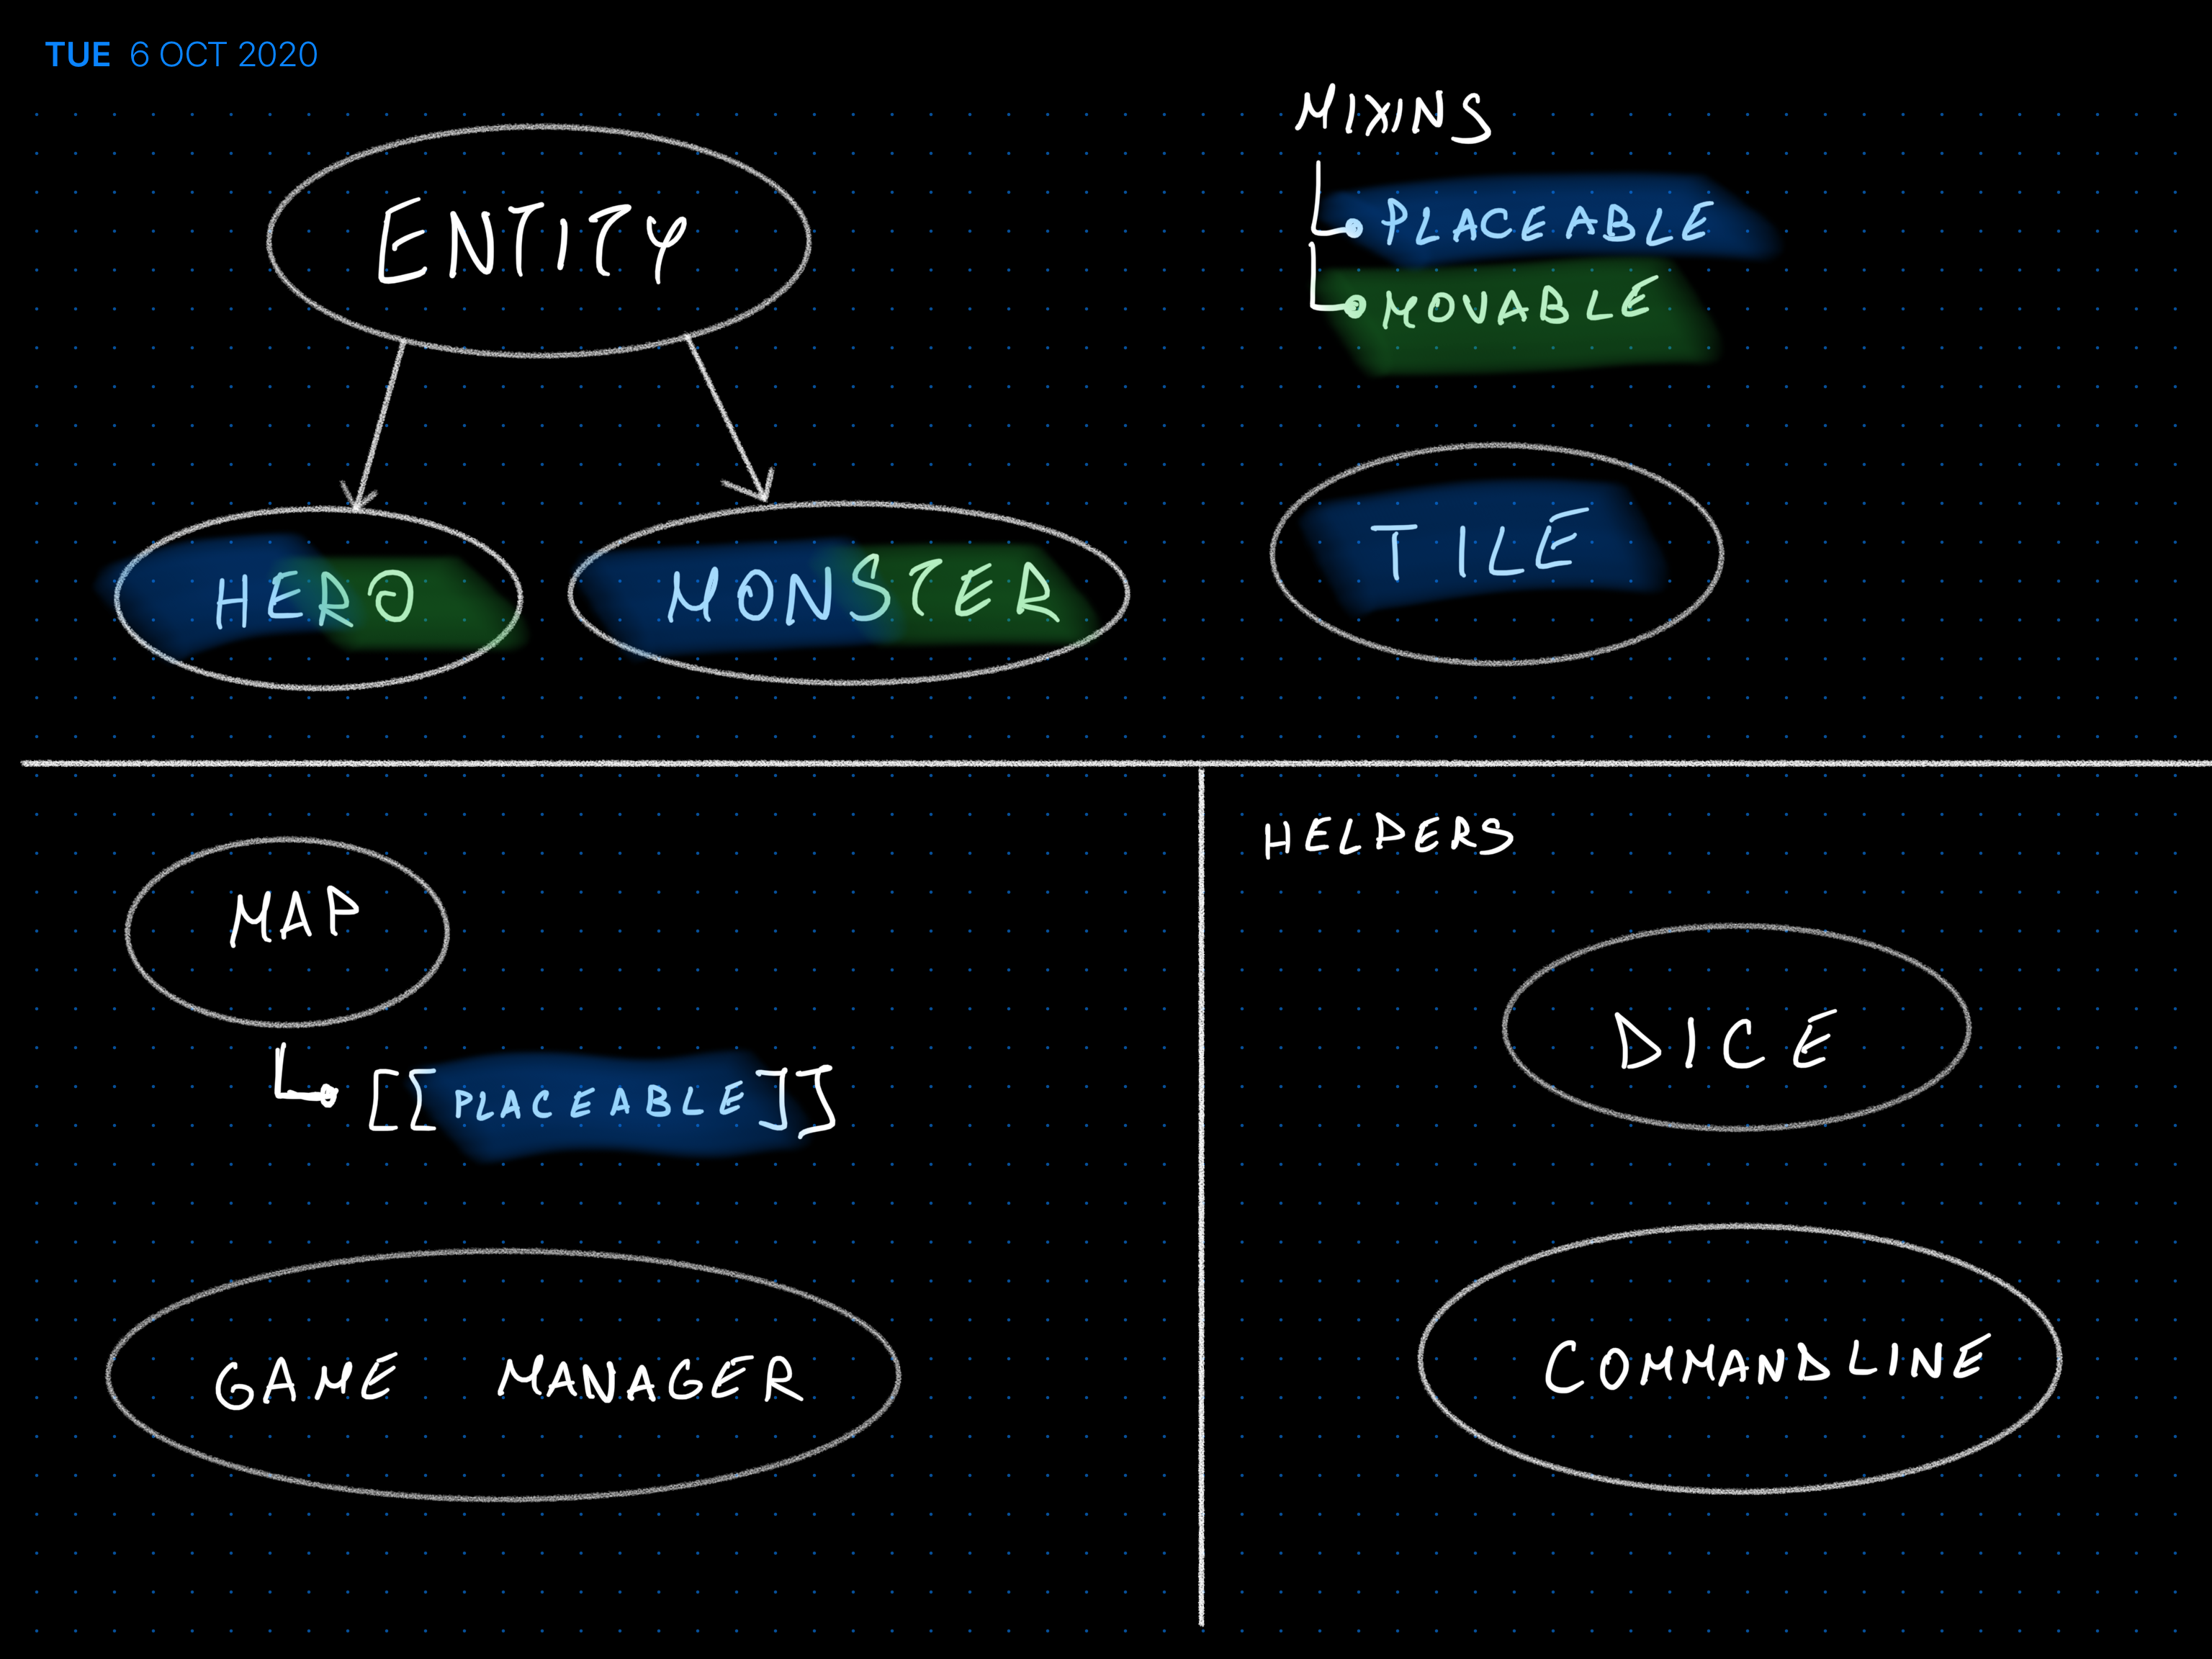 TUE 6 OCT 2020
ENTITY
HERO
MONSTER
MIXINS
PLACEABLE
MOVABLE
TILE
MAP
[[PLACEABLE]]
GAME MANAGER
HELPERS
DICE
COMMANDLINE